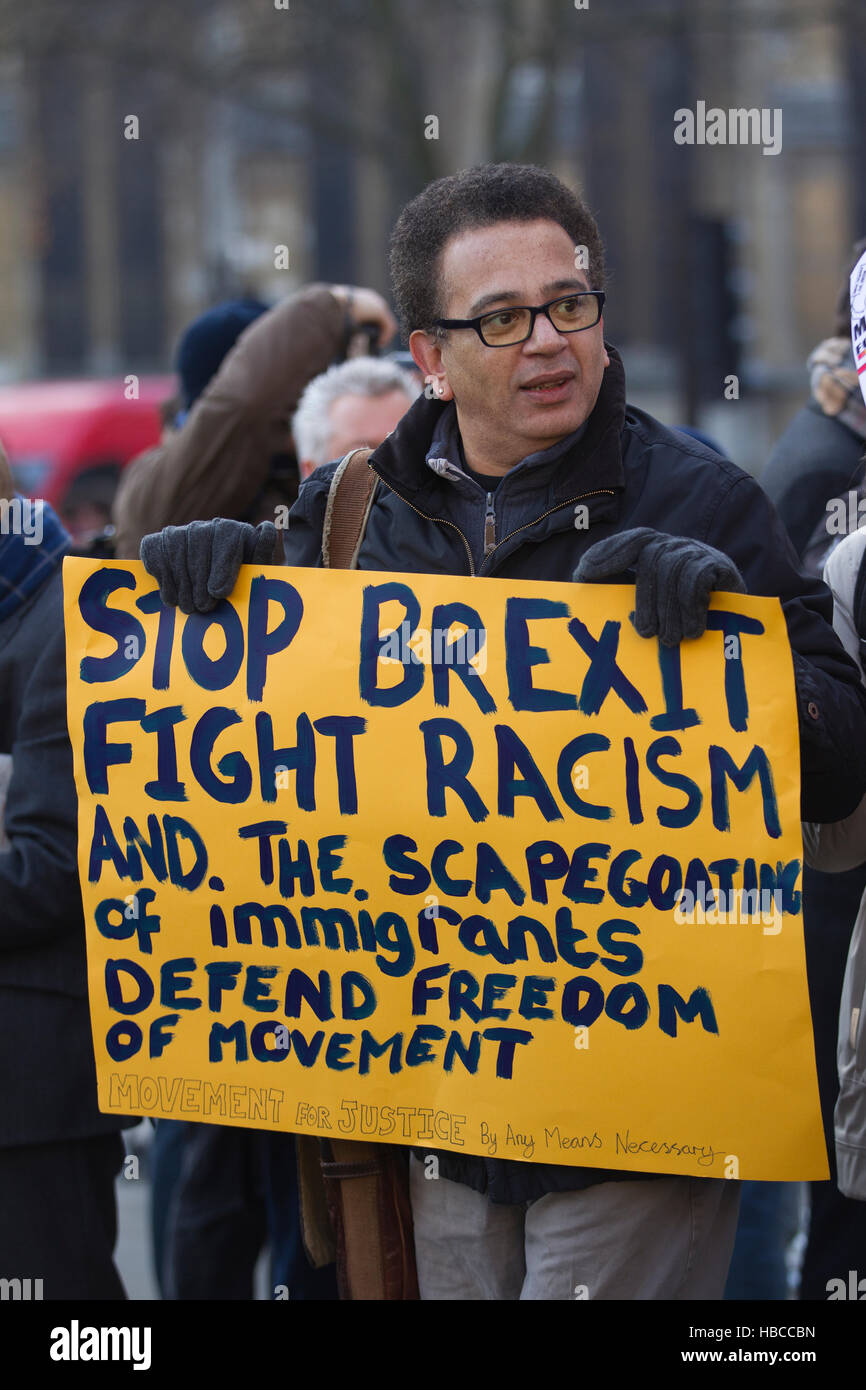 STOP BREXIT
FIGHT RACISM
AND. THE. SCAPEGOATING
of immigrants
DEFEND FREEDOM
OF MOVEMENT
MOVEMENT FOR JUSTICE By Any Means Necessary
alamy
alamy
Image ID: HBCCBN
www.alamy.com